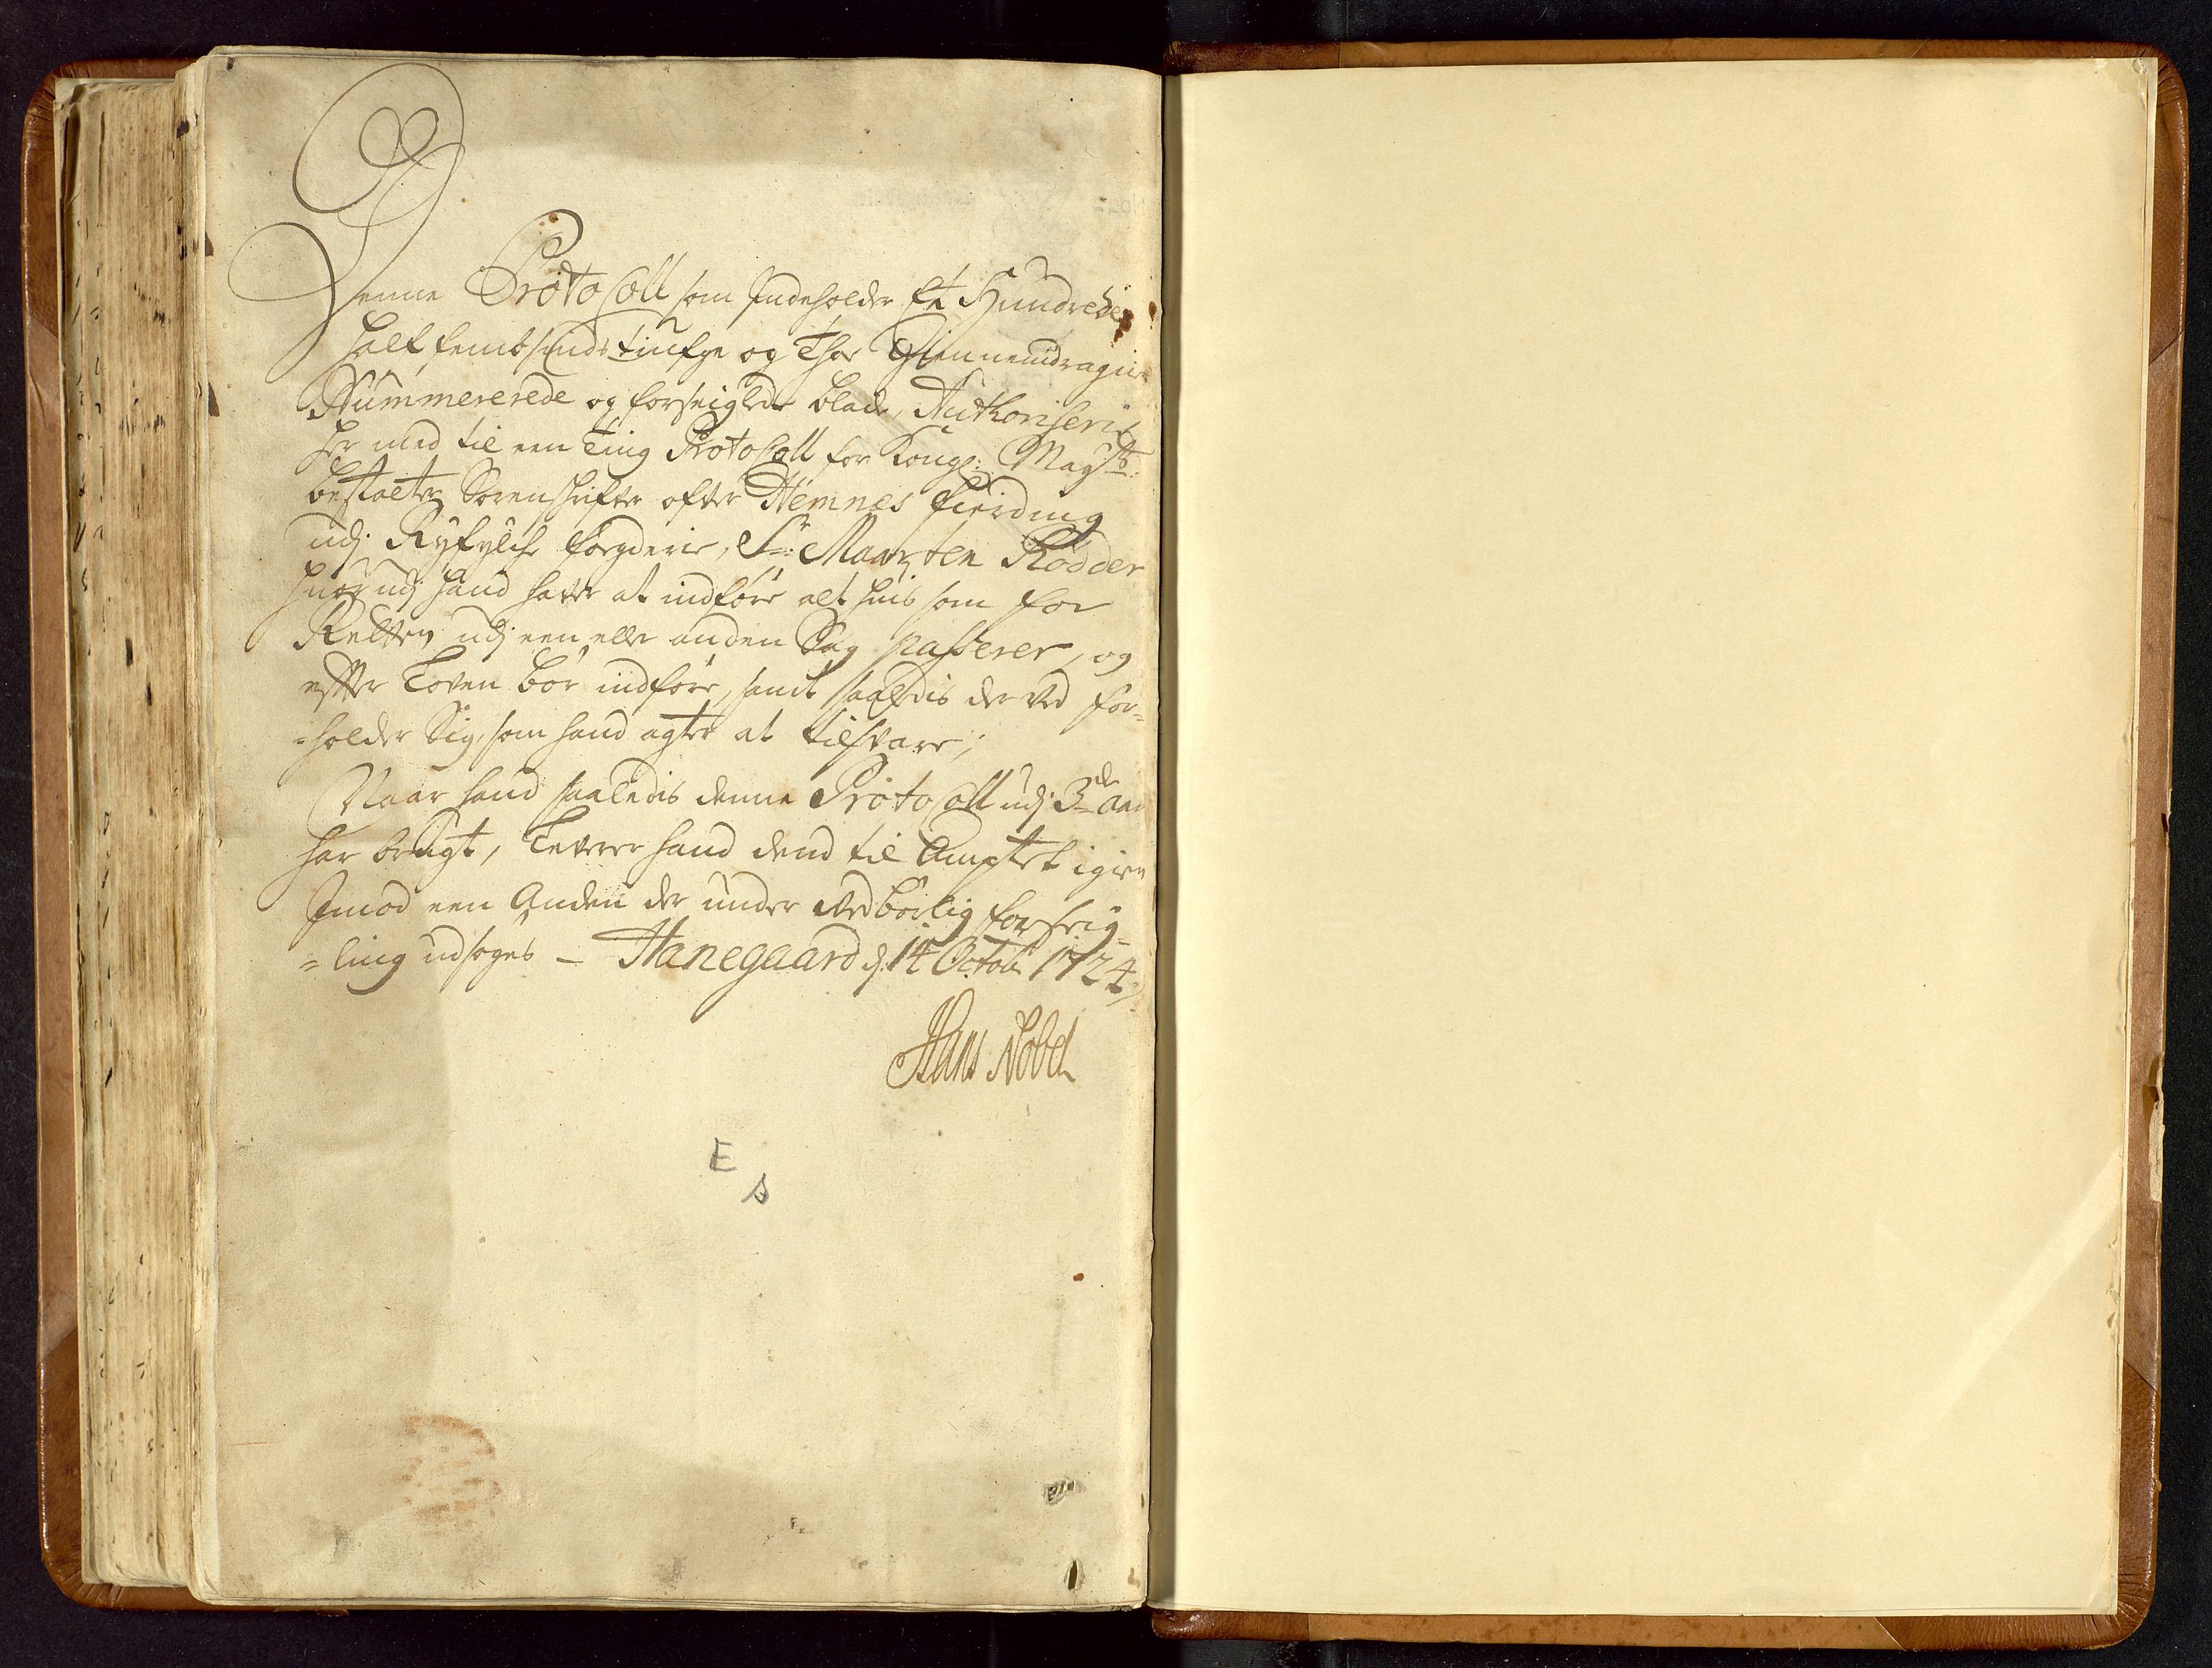 Denne Protocoll som Indeholder Et Hundrede
half fembsinds tiufge og Thoe Giennemdragne
Nummererede og forseiglede blade, Authoriseris
her med til een Ting Protocoll for Kongl: Mayts:
bestalter Sorenskrifer ofver Hemnes fierding
udj Ryfylche fogderie, Sr: Maarten Rødder
hvor udj hand hafver at indføre alt hvis som for
Retten udj een eller anden Sag passerer, og
efter Loven bør indføre, samt saaledis der ved for-
=holder Sig, som hand agter at tilsvare;
Naar hand saaledis denne Protocoll udj 3de aar
har brugt, Leverer hand dend til Amptet igien
Imod een Anden der under vedbørlig forseig=
=ling udsøges – Hanegaard d: 14 Octobr 1724
Hans Nobel
E
s